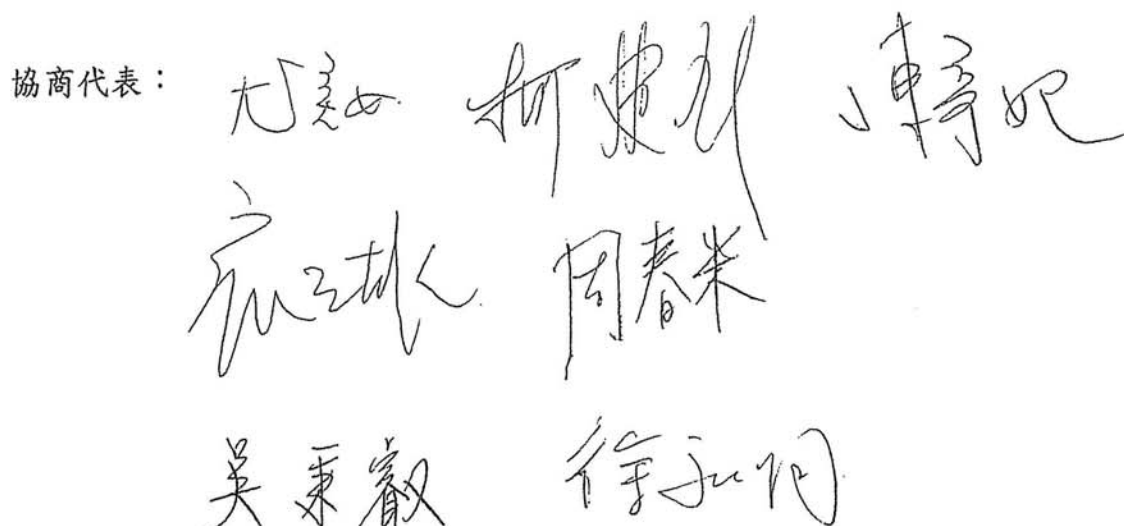 協商代表： 尤美女 柯建銘 陳亭妃
周春米
吳秉叡 徐永明